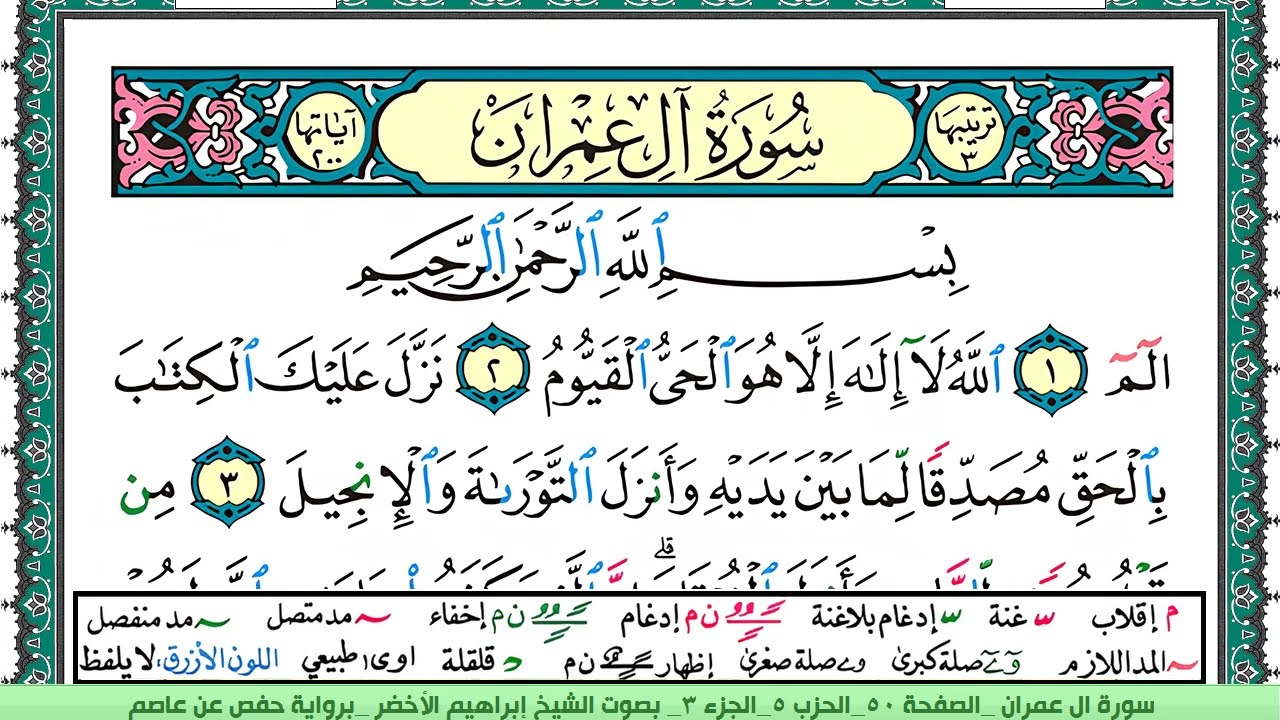 ترتيبها ٣
سُورَةُ آلِ عِمْرَانَ
آيَاتها ٢٠٠
بِسْمِ ٱللَّهِ ٱلرَّحْمَٰنِ ٱلرَّحِيمِ
الٓمٓ ١ ٱللَّهُ لَآ إِلَٰهَ إِلَّا هُوَ ٱلْحَىُّ ٱلْقَيُّومُ ٢ نَزَّلَ عَلَيْكَ ٱلْكِتَٰبَ
بِٱلْحَقِّ مُصَدِّقًا لِّمَا بَيْنَ يَدَيْهِ وَأَنزَلَ ٱلتَّوْرَىٰةَ وَٱلْإِنجِيلَ ٣ مِن
م إقلاب س غنة س إدغام بلاغنة ن م إدغام ن م إخفاء مد متصل مد منفصل
المد اللازم وے صلة كبرى وے صلة صغرى إظهار ن م قلقلة د اوى ا طبيعي اللون الأزرق، لا يلفظ
سورة ال عمران _الصفحة ٥٠_الحزب ٥_الجزء ٣_ بصوت الشيخ إبراهيم الأخضر _برواية حفص عن عاصم